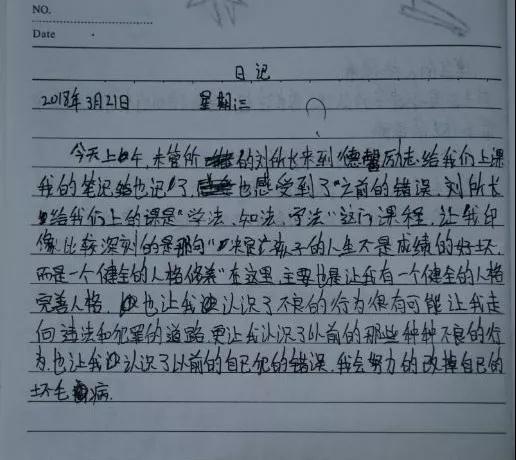 NO.
Date
日记
2018年3月21日 星期三
今天上午,未管所的刘所长来到"德馨励志"给我们上课
我的笔记也记了也感受到了"之前的错误.刘所长
给我们上的课是"学法、知法、守法"这门课程,让我印
像比较深刻的是那句"决定孩子的人生不是成绩的好坏,
而是一个健全的人格修养"在这里,主要也是让我有一个健全的人格
完善人格,也让我认识了不良的行为很有可能让我走
向违法和犯罪的道路.更让我认识了以前的那些种种不良的行
为,也让我认识了以前的自己犯的错误,我会努力的改掉自己的
坏毛病.